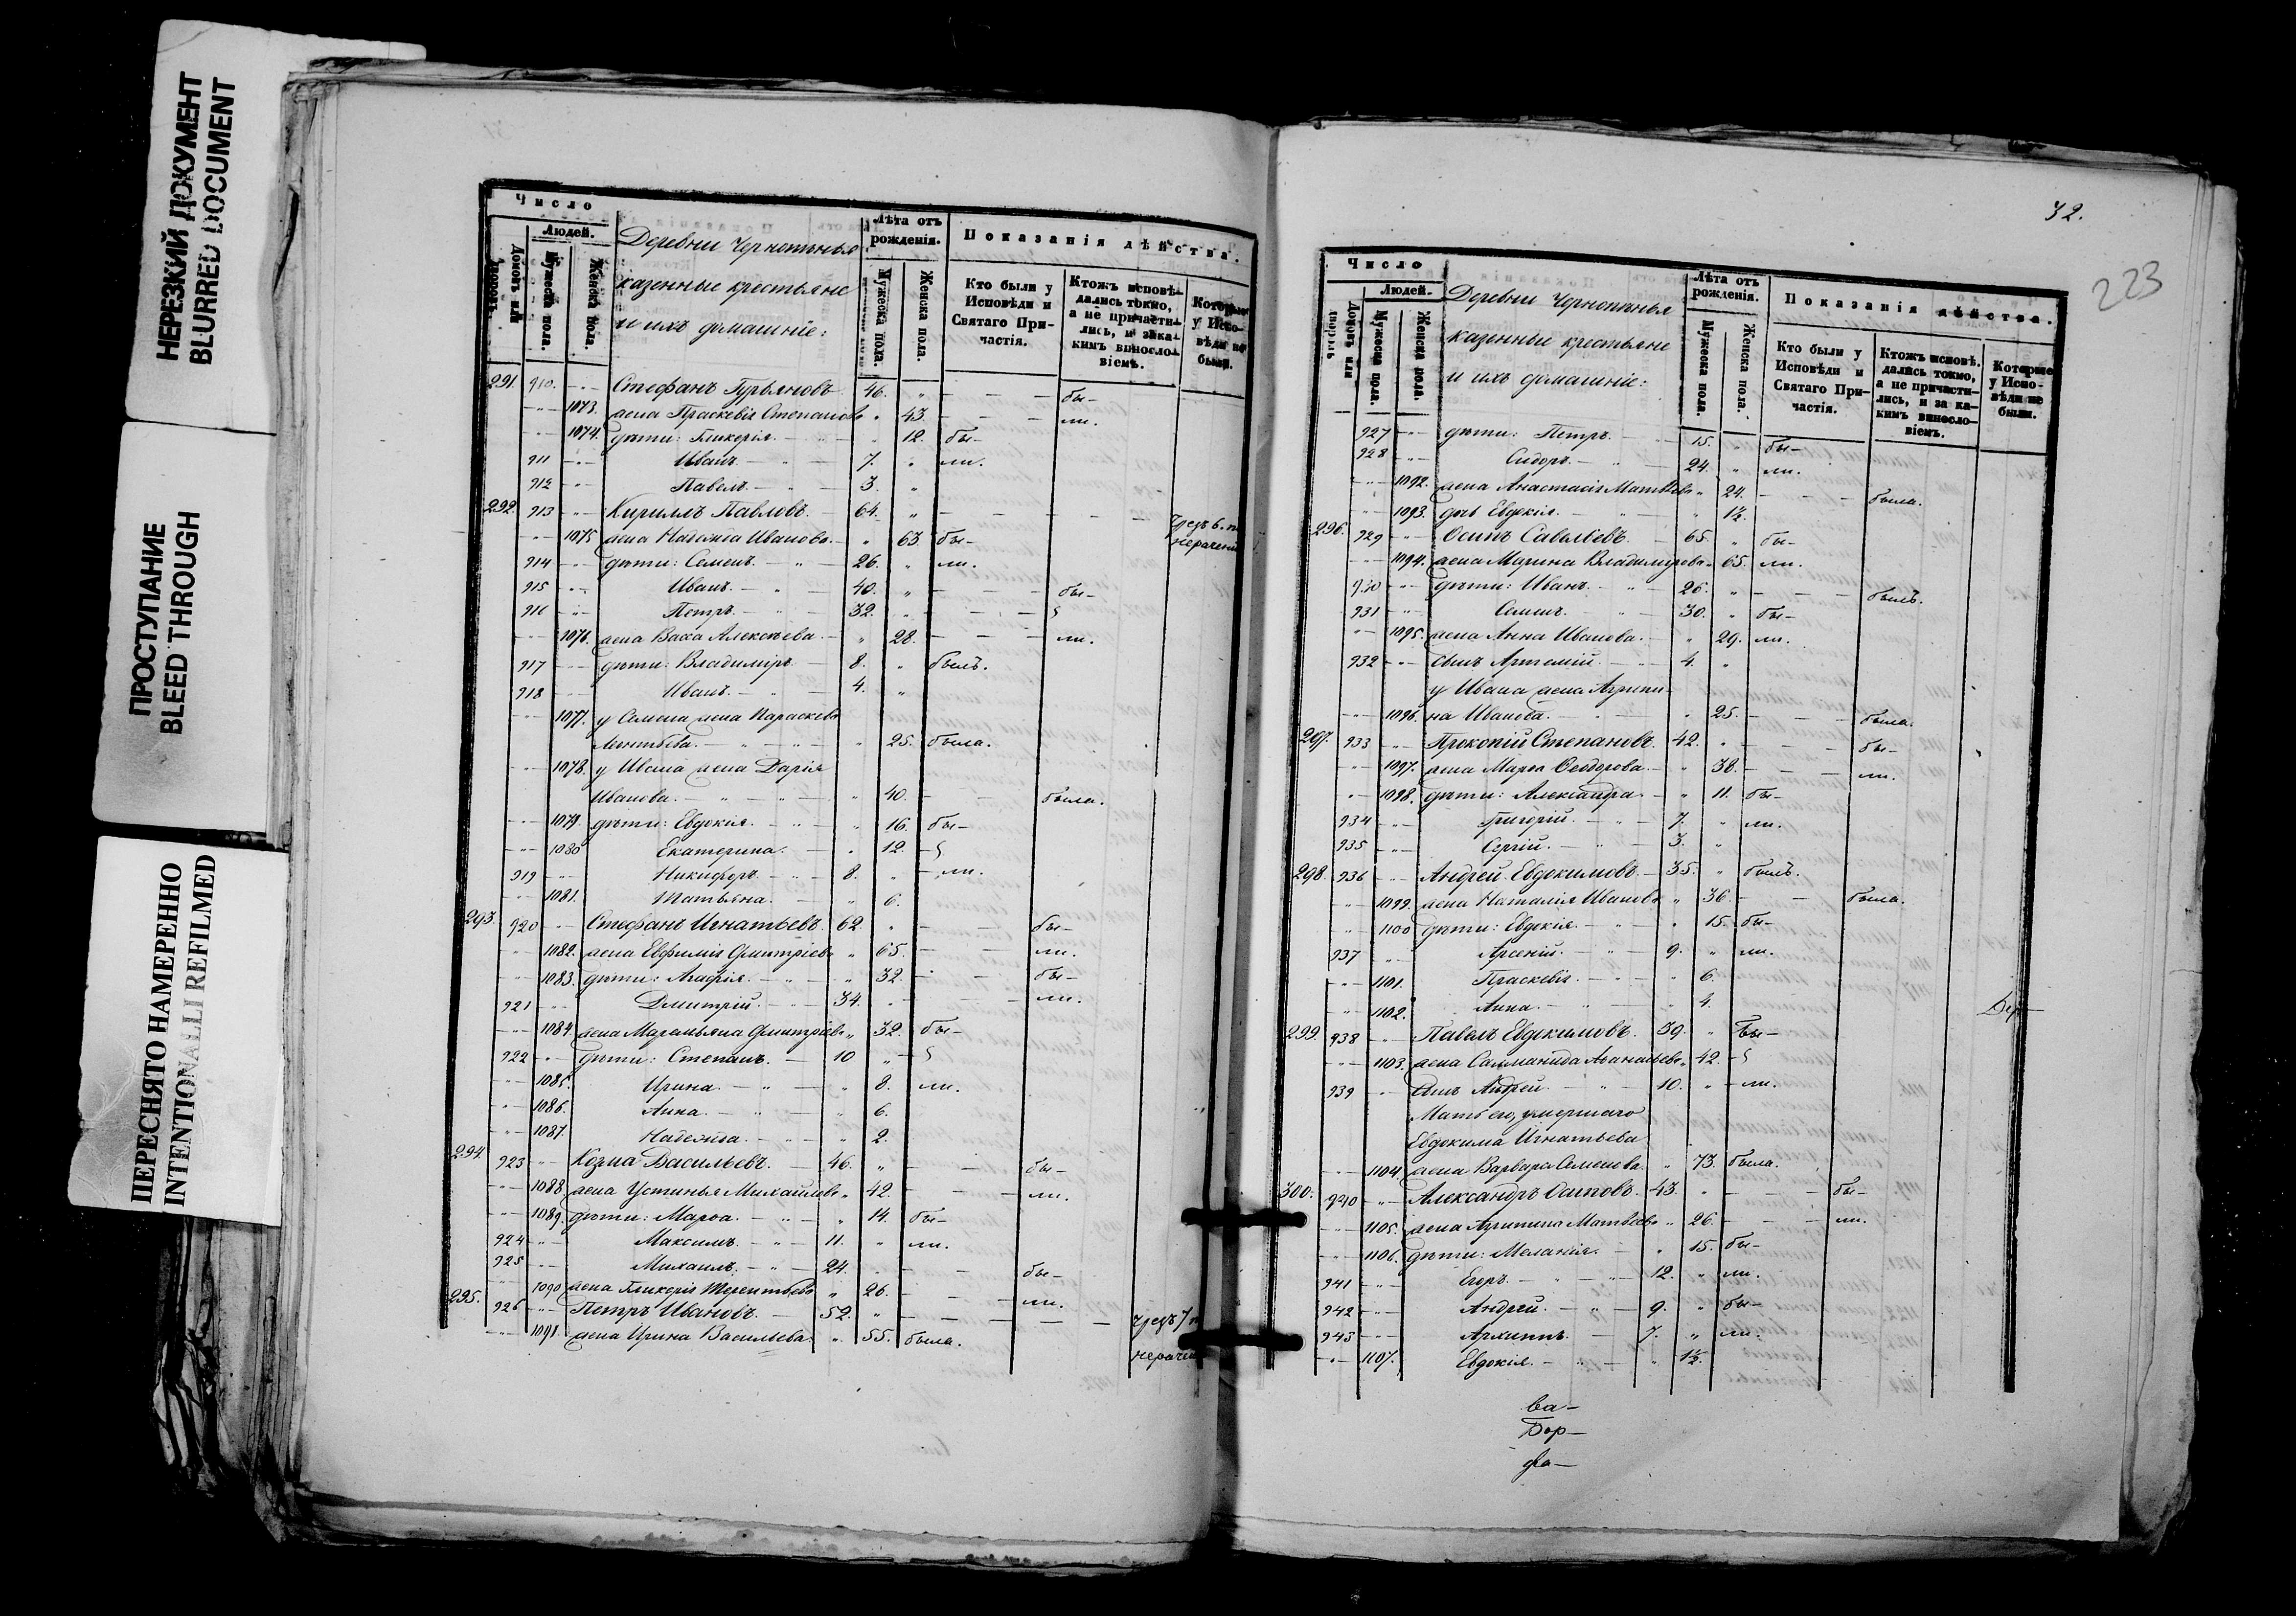 НЕРЕЗКИЙ ДОКУМЕНТ
BLURRED DOCUMENT
ПРОСТУПАНИЕ
BLEED THROUGH
ПЕРЕСНЯТО НАМЕРЕННО
INTENTIONALLI REFILMED
Число
Домовъ или дворовъ.
Людей.
Мужеска пола.
Женска пола.
Деревни Чернотынья
казенные крестьяне
и ихъ домашніе:
Лѣта отъ рожденія.
Мужеска пола.
Женска пола.
Показанія дѣйства.
Кто были у Исповѣди и Святаго Причастія.
Ктожъ исповѣдались токмо, а не причастились, и за какимъ винословіемъ.
Которые у Исповѣди не были.
291. 910. -„- Стефанъ Гурьяновъ 46. „ — — бы-
-„- 1073. жена Праскевія Степанова „ 43. — — ли.
-„- 1074. дѣти: Гликерія. — „ 12. бы-
911 -„- Иванъ. — „ — 7. „ ли.
912 -„- Павелъ. — „ — 3. „
292. 913 -„- Кириллъ Павловъ. — 64. „ — — — — Чрезъ 6.
-„- 1075 жена Надежда Иванова. — „ 63. бы- нерачен
914 -„- дѣти: Семенъ. — „ — 26. „ ли.
915 -„- Иванъ. — „ — 40. „ — — бы-
916 -„- Петръ. — „ 32. „ — — —
-„- 1076. жена Васса Алексѣева. — „ 28. — — ли.
917 -„- дѣти: Владиміръ. — 8. „ былъ.
918 -„- Иванъ. — „ — 4. „
-„- 1077. у Семена жена Параскева
Леонтьева. — „ — „ — „ 25. была.
-„- 1078. у Ивана жена Дарія
Иванова. — „ — „ — „ 40. — — была.
-„- 1079. дѣти: Евдокія. — „ — „ 16. бы-
-„- 1080 Екатерина. — „ 12. —
919 -„- Никифоръ. — „ — 8. „ — ли.
-„- 1081. Татьяна. — „ 6.
293. 920 -„- Стефанъ Игнатьевъ. 62. „ — — бы-
-„- 1082. жена Евфимія Дмитріева „ 65. — — ли.
-„- 1083. дѣти: Агафія. — „ — „ 32. — — бы-
921 -„- Дмитрій. — „ — 34. „ — — ли.
-„- 1084. жена Маремьяна Дмитріева „ 32. бы-
922 -„- дѣти: Степанъ. — 10 „ —
-„- 1085. Ирина. — „ — „ 8. ли.
-„- 1086. Анна. — „ — „ 6.
-„- 1087. Надежда. — „ — „ 2.
294. 923 -„- Козма Васильевъ. — 46. „ — — бы-
-„- 1088 жена Устинья Михайлова „ 42. — — ли.
-„- 1089. дѣти: Марѳа. — „ — „ 14. бы-
924 -„- Максимъ. — „ — 11. „ ли.
925 -„- Михаилъ. — „ — 24. „ — — бы-
-„- 1090 жена Гликерія Терентьева „ 26. — — ли.
295. 926 -„- Петръ Ивановъ. — 52. „ — — — — Чрезъ 7
-„- 1091. жена Ирина Васильева. „ 55. была. нерачен
32.
223
Число
Домовъ или дворовъ
Людей.
Мужеска пола.
Женска пола.
Деревни Чернотынья
казенные крестьяне
и ихъ домашніе:
Лѣта отъ рожденія.
Мужеска пола.
Женска пола.
Показанія дѣйства.
Кто были у Исповѣди и Святаго Причастія.
Ктожъ исповѣдались токмо, а не причастились, и за какимъ винословіемъ.
Которые у Исповѣди не были.
927 -„- дѣти: Петръ. — „ — 15. „ бы-
928 -„- Сидоръ. — „ — 24. „ ли.
-„- 1092. жена Анастасія Матвѣева „ 24. — — была.
-„- 1093. дочь Евдокія. — „ — „ 1½.
296. 929 -„- Осипъ Савельевъ. — 65. „ бы-
-„- 1094. жена Марина Владимірова „ 65. ли.
930 -„- дѣти: Иванъ. — „ — 26. „ — — былъ.
931 -„- Семенъ. — „ — 30. „ бы-
-„- 1095. жена Анна Иванова. — „ 29. ли.
932 -„- сынъ Артемій. — „ — 4. „
у Ивана жена Агрипи-
-„- 1096. на Иванова. — „ — „ 25. — — была.
297. 933 -„- Прокопій Степановъ. 42. „ — — бы-
-„- 1097. жена Марѳа Ѳеодорова. — „ 38. — — ли.
-„- 1098. дѣти: Александра. — „ 11. бы-
934 -„- Григорій. — „ — 7. „ ли.
935 -„- Сергій. — „ — 3. „
298. 936 -„- Андрей Евдокимовъ. — 35. „ былъ.
-„- 1099. жена Наталія Иванова „ 36. — — была.
-„- 1100 дѣти: Евдокія. — „ — „ 15. бы-
937 -„- Арсеній. — „ — 9. „ ли.
-„- 1101. Праскевія. — „ — „ 6.
-„- 1102. Анна. — „ — „ 4.
Дер-
299. 938 -„- Павелъ Евдокимовъ. 39. „ бы-
-„- 1103. жена Саламанида Аѳанасьева „ 42. —
939 -„- сынъ Андрей. — „ — 10. „ — ли.
Мать его, умершаго
Евдокима Игнатьева
-„- 1104. жена Варвара Семенова. „ 73. была.
300. 940 -„- Александръ Осиповъ. 43. „ — — бы-
-„- 1105. жена Агрипина Матвѣева „ 26. — — ли.
-„- 1106. дѣти: Меланія. — „ 15. бы-
941 -„- Егоръ. — „ — „ — 12. „ ли.
942 -„- Андрей. — „ — 9. „ бы-
943 -„- Архиппъ. — 7. „ ли.
-„- 1107. Евдокія. — „ — „ 1½.
ва-
Бор-
да-